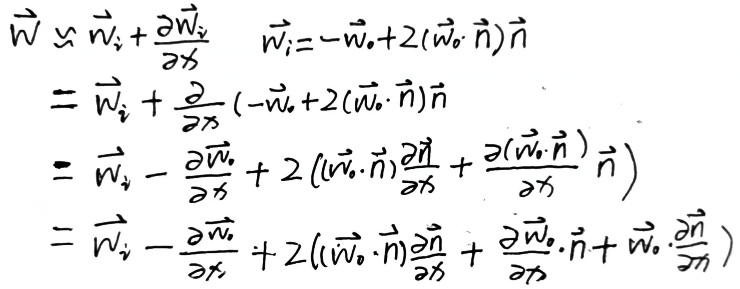 $\vec{w} \approx \vec{w}_i + \frac{\partial \vec{w}_i}{\partial x} \quad \vec{w}_i = -\vec{w}_o + 2(\vec{w}_o \cdot \vec{n})\vec{n}$
$= \vec{w}_i + \frac{\partial}{\partial x}(-\vec{w}_o + 2(\vec{w}_o \cdot \vec{n})\vec{n}$
$= \vec{w}_i - \frac{\partial \vec{w}_o}{\partial x} + 2((\vec{w}_o \cdot \vec{n})\frac{\partial \vec{n}}{\partial x} + \frac{\partial (\vec{w}_o \cdot \vec{n})}{\partial x}\vec{n})$
$= \vec{w}_i - \frac{\partial \vec{w}_o}{\partial x} + 2((\vec{w}_o \cdot \vec{n})\frac{\partial \vec{n}}{\partial x} + \frac{\partial \vec{w}_o}{\partial x} \cdot \vec{n} + \vec{w}_o \cdot \frac{\partial \vec{n}}{\partial x})$